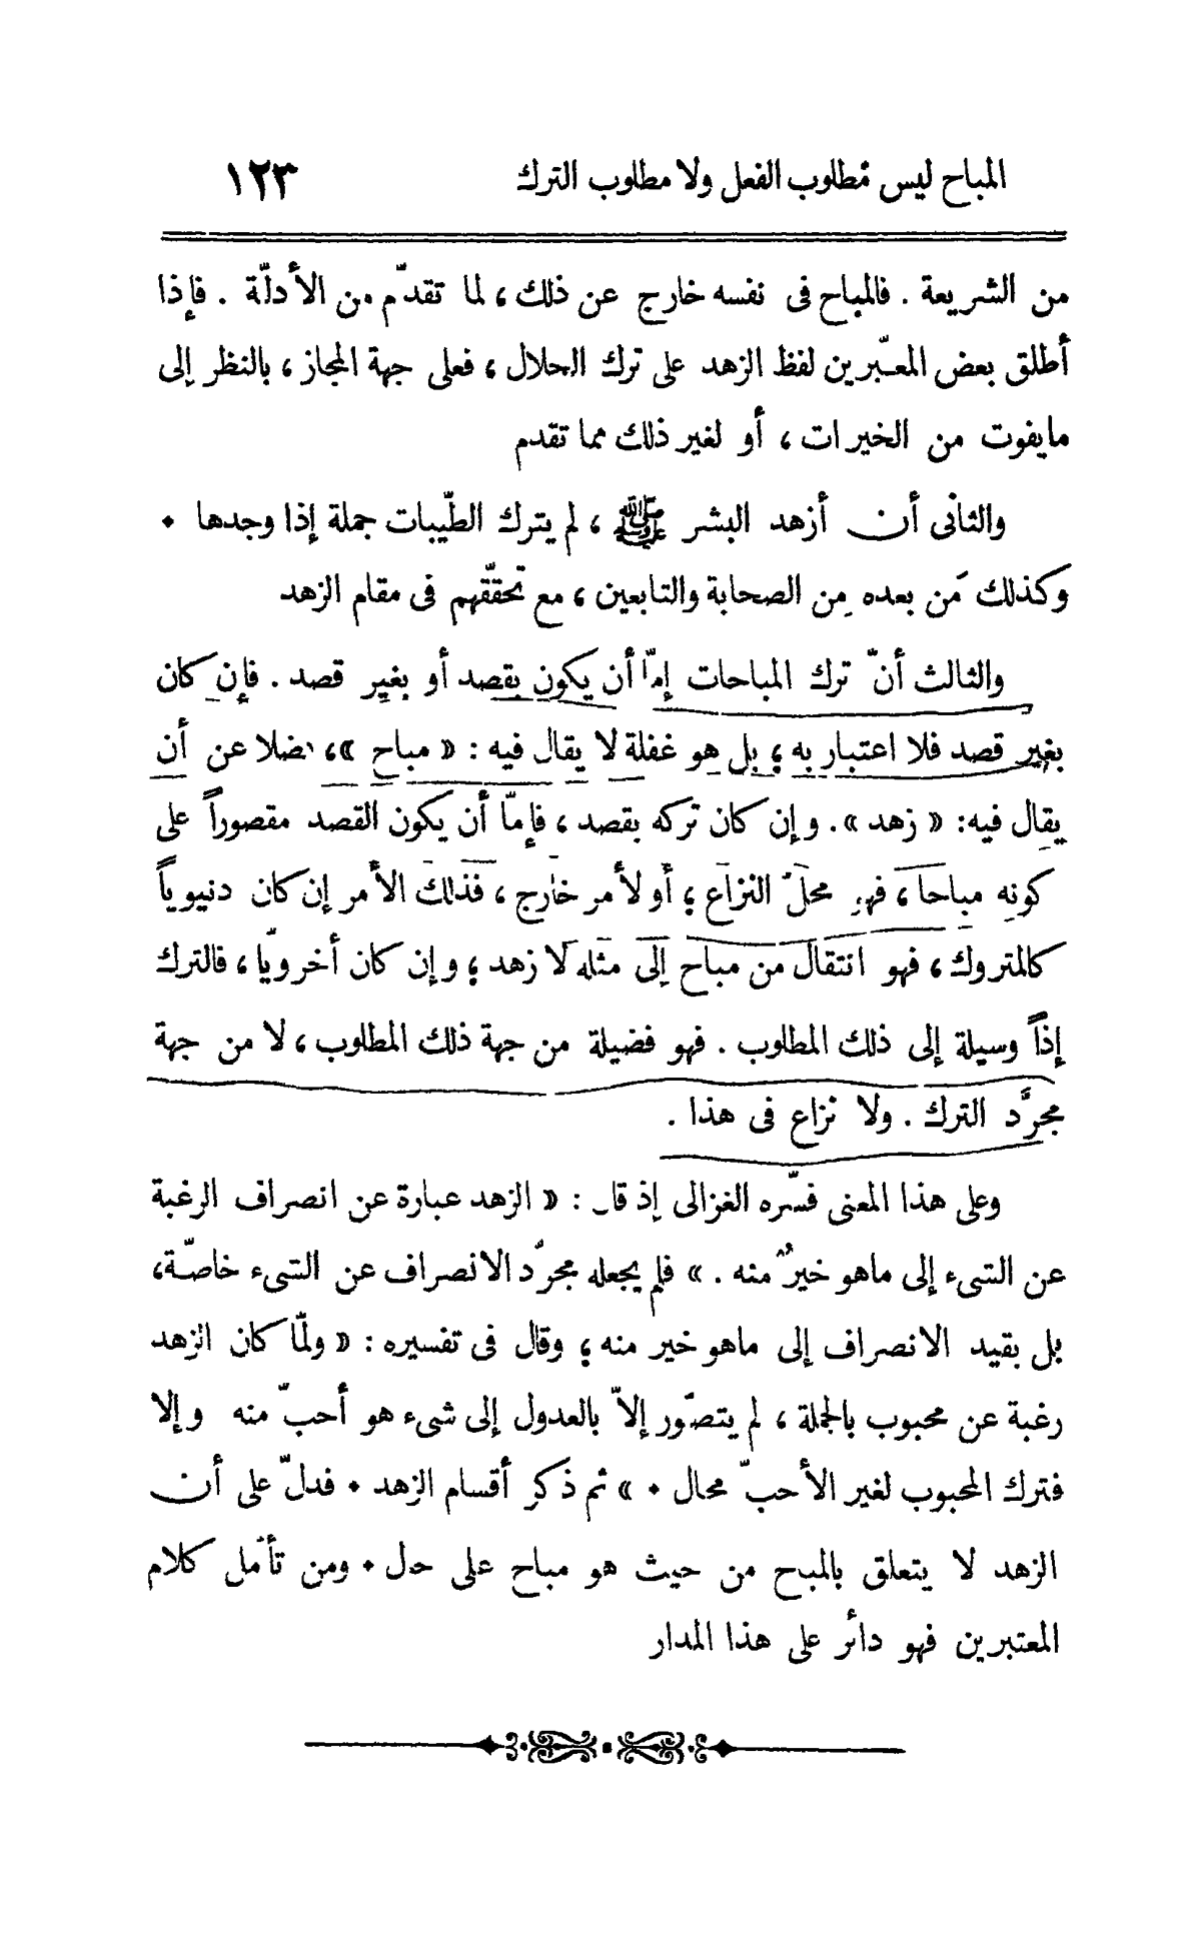 المباح ليس مطلوب الفعل ولا مطلوب الترك ١٢٣
من الشريعة . فالمباح فى نفسه خارج عن ذلك ، لما تقدّم من الأدلّة . فإذا
أطلق بعض المعبّرين لفظ الزهد على ترك الحلال ، فعلى جهة المجاز ، بالنظر إلى
مايفوت من الخيرات ، أو لغير ذلك مما تقدم
والثانى أن أزهد البشر ﷺ ، لم يترك الطّيبات جملة إذا وجدها .
وكذلك مَن بعده مِن الصحابة والتابعين ، مع تحقّقهم فى مقام الزهد
والثالث أنّ ترك المباحات إمّا أن يكون بقصد أو بغير قصد . فإن كان
بغير قصد فلا اعتبار به ؛ بل هو غفلة لا يقال فيه : « مباح » ، فضلا عن أن
يقال فيه : « زهد » . وإن كان تركه بقصد ، فإمّا أن يكون القصد مقصوراً على
كونه مباحا ، فهو محلّ النزاع ؛ أو لأمر خارج ، فذلك الأمر إن كان دنيوياً
كالمتروك ، فهو انتقال من مباح إلى مثله لا زهد ؛ وإن كان أخرويّا ، فالترك
إذاً وسيلة إلى ذلك المطلوب . فهو فضيلة من جهة ذلك المطلوب ، لا من جهة
مجرَّد الترك . ولا نزاع فى هذا .
وعلى هذا المعنى فسّره الغزالى إذ قال : « الزهد عبارة عن انصراف الرغبة
عن الشىء إلى ماهو خيرٌ منه . » فلم يجعله مجرّد الانصراف عن الشىء خاصّة ،
بل بقيد الانصراف إلى ماهو خير منه ؛ وقال فى تفسيره : « ولمّا كان الزهد
رغبة عن محبوب بالجملة ، لم يتصوّر إلاّ بالعدول إلى شىء هو أحبّ منه وإلا
فترك المحبوب لغير الأحبّ محال . » ثم ذكر أقسام الزهد . فدلّ على أن
الزهد لا يتعلق بالمباح من حيث هو مباح على حال . ومن تأمّل كلام
المعتبرين فهو دائر على هذا المدار